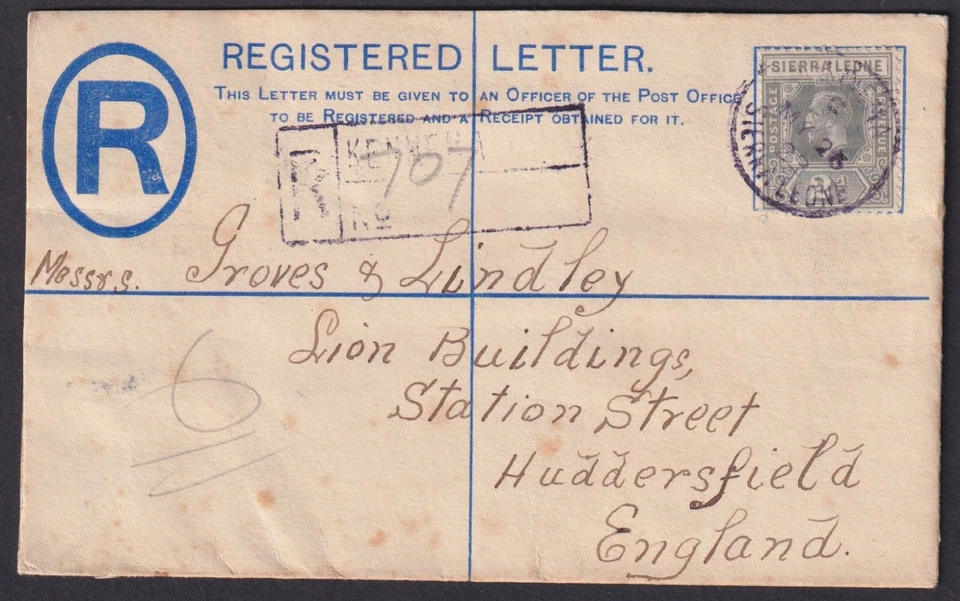 REGISTERED LETTER.
THIS LETTER MUST BE GIVEN TO AN OFFICER OF THE POST OFFICE
TO BE REGISTERED AND A RECEIPT OBTAINED FOR IT.
R
SIERRA LEONE
POSTAGE
REVENUE
MY
25
SIERRA LEONE
R
No
707
Messrs. Groves & Lindley
Lion Buildings,
Station Street
Huddersfield
England.